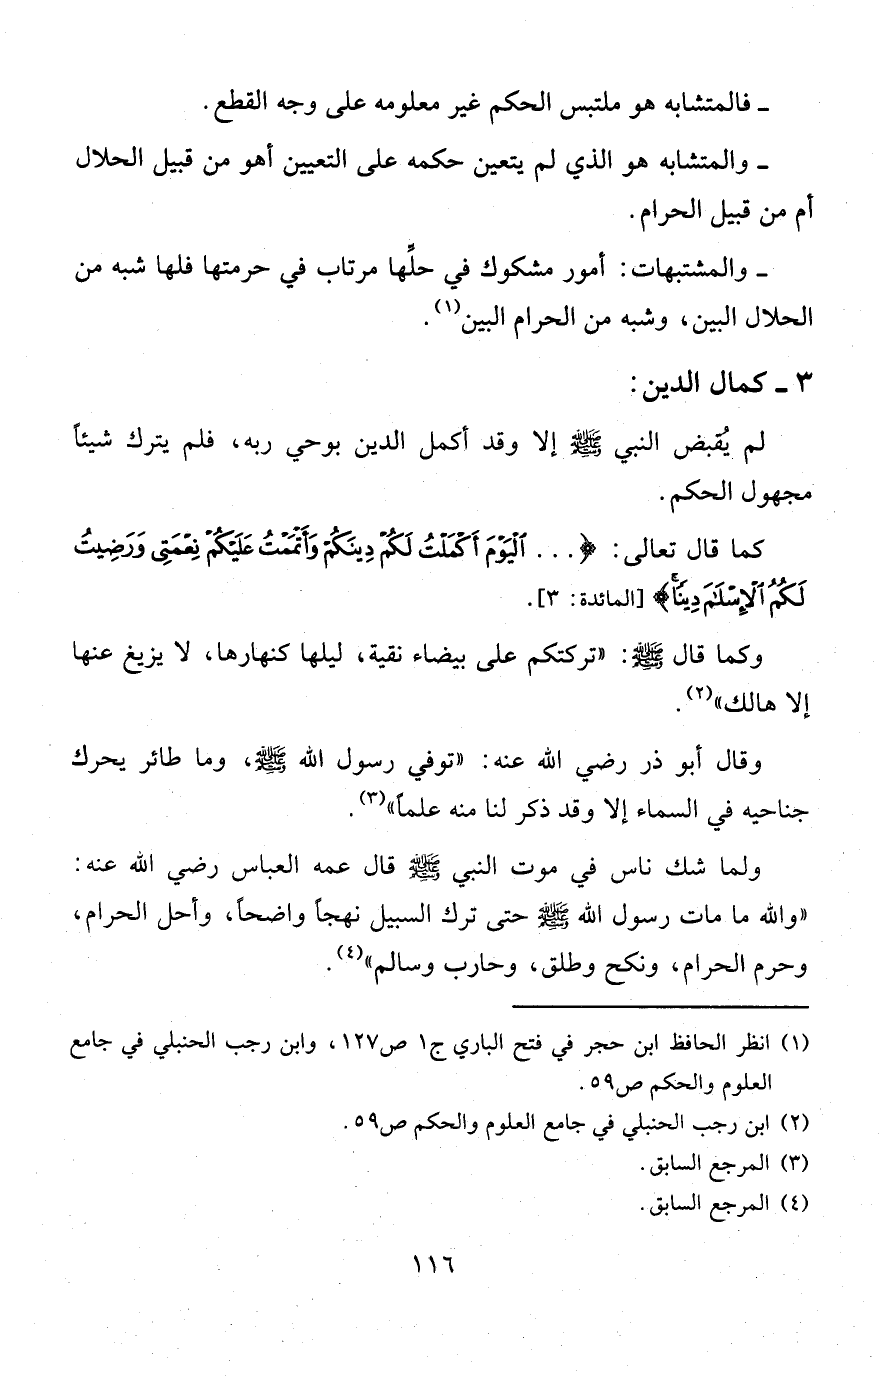 ـ فالمتشابه هو ملتبس الحكم غير معلومه على وجه القطع.
ـ والمتشابه هو الذي لم يتعين حكمه على التعيين أهو من قبيل الحلال
أم من قبيل الحرام.
ـ والمشتبهات: أمور مشكوك في حلِّها مرتاب في حرمتها فلها شبه من
الحلال البين، وشبه من الحرام البين(١).
٣ ـ كمال الدين:
لم يُقبض النبي ﷺ إلا وقد أكمل الدين بوحي ربه، فلم يترك شيئاً
مجهول الحكم.
كما قال تعالى: ﴿... ٱلْيَوْمَ أَكْمَلْتُ لَكُمْ دِينَكُمْ وَأَتْمَمْتُ عَلَيْكُمْ نِعْمَتِى وَرَضِيتُ
لَكُمُ ٱلْإِسْلَٰمَ دِينًاۚ﴾ [المائدة: ٣].
وكما قال ﷺ: «تركتكم على بيضاء نقية، ليلها كنهارها، لا يزيغ عنها
إلا هالك»(٢).
وقال أبو ذر رضي الله عنه: «توفي رسول الله ﷺ، وما طائر يحرك
جناحيه في السماء إلا وقد ذكر لنا منه علماً»(٣).
ولما شك ناس في موت النبي ﷺ قال عمه العباس رضي الله عنه:
«والله ما مات رسول الله ﷺ حتى ترك السبيل نهجاً واضحاً، وأحل الحرام،
وحرم الحرام، ونكح وطلق، وحارب وسالم»(٤).
(١) انظر الحافظ ابن حجر في فتح الباري ج١ ص١٢٧، وابن رجب الحنبلي في جامع
العلوم والحكم ص٥٩.
(٢) ابن رجب الحنبلي في جامع العلوم والحكم ص٥٩.
(٣) المرجع السابق.
(٤) المرجع السابق.
١١٦